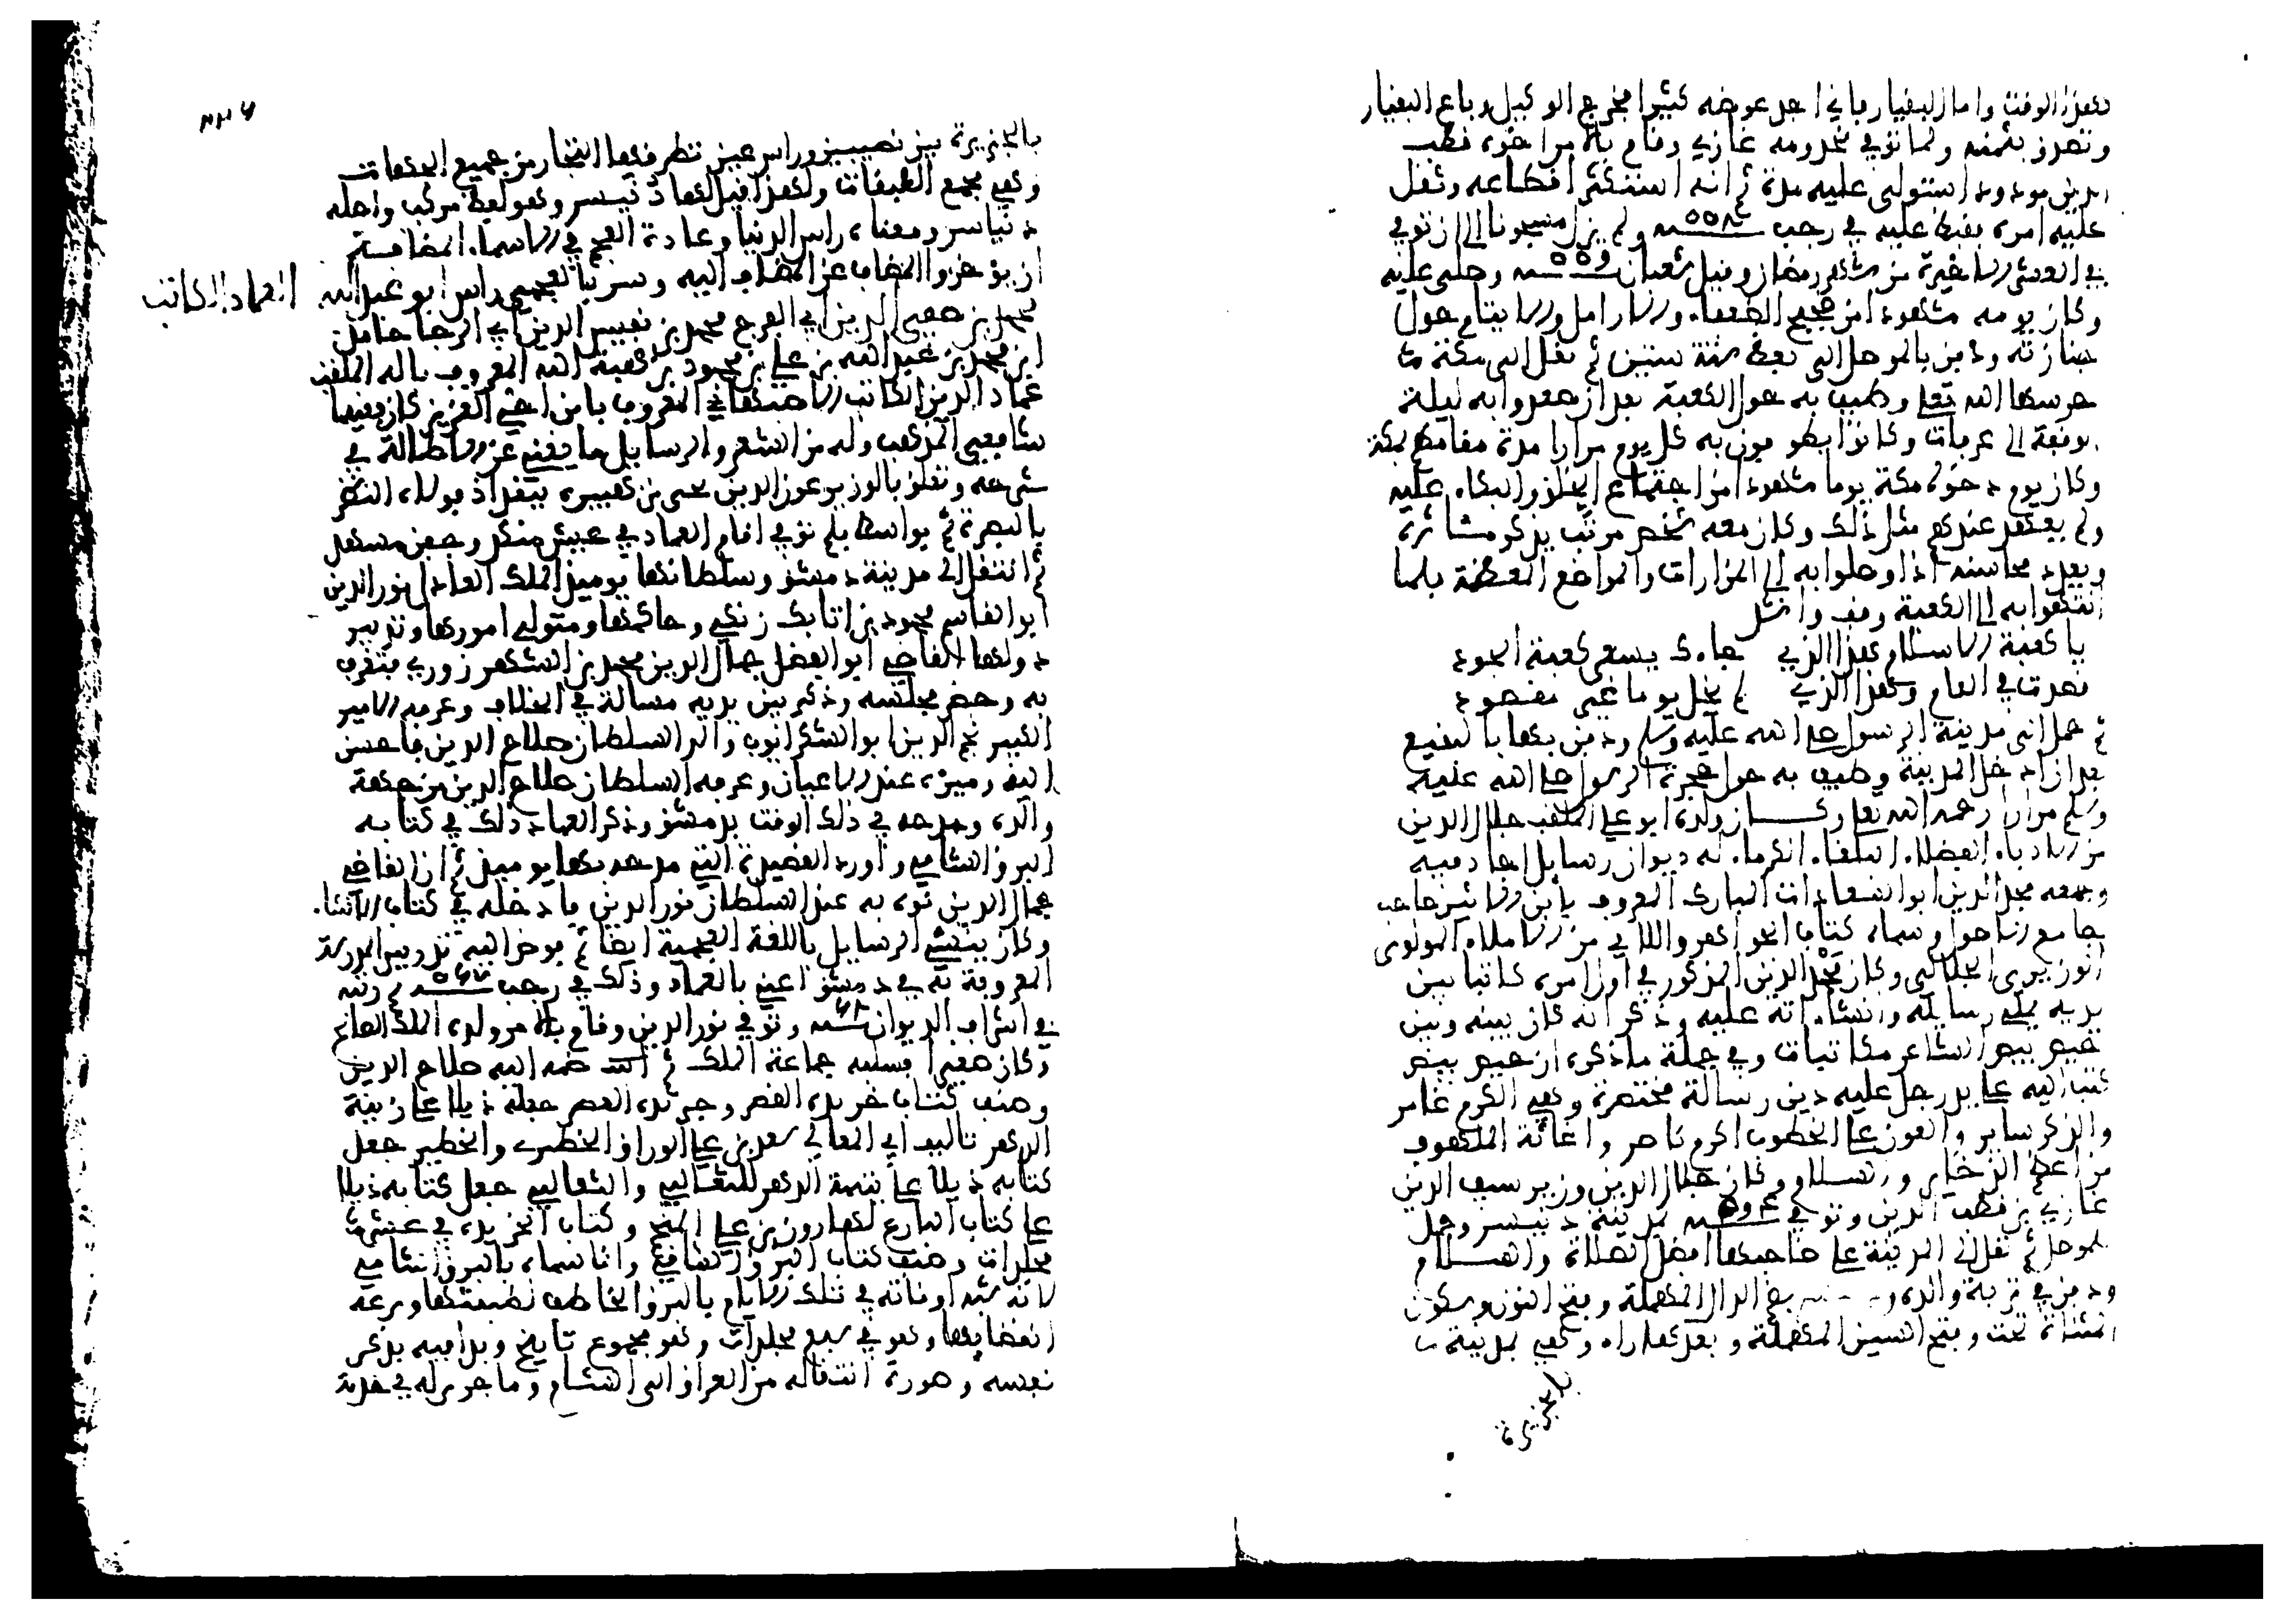 لهذا الوقت واما البقيار فاني اجد عوضه كثيرا فخرج الوكيل وباع البقيار
وتصدق بثمنه ولما توفي مخدومه غازي وقام بالامر اخوه قطب
الدين مودود استولى عليه مدة ثم انه استكثر اقطاعه وثقل
عليه امره فقبض عليه في رجب سنة ٥٥٨ ولم يزل مسجونا الى ان توفي
في العشر الاخيرة من شهر رمضان وقيل شعبان سنة ٥٥٩ وصلي عليه
وكان يومه مشهودا من ضجيج الضعفاء والارامل والايتام حول
جنازته ودفن بالموصل الى بعض سنة ستين ثم نقل الى مكة
حرسها الله تعلى وطيف به حول الكعبة بعد ان صعدوا به ليلة
الوقفة الى عرفات وكانوا يطوفون به كل يوم مرارا مدة مقامهم بمكة
وكان يوم دخوله مكة يوما مشهودا من اجتماع الخلق والبكاء عليه
ولم يعهد عندهم مثل ذلك وكان معه شخص مرتب يذكر مآثره
ويعدد محاسنه اذا وصلوا به الى المزارات والمواضع المعظمة فلما
انتهوا به الى الكعبة وقف وانشد
يا كعبة الاسلام هذا الذي جاءك يسعى كعبة الجود
قصدت في العام وهذا الذي لم يخل يوما غير مقصود
ثم حمل الى مدينة الرسول صلى الله عليه وسلم ودفن بها بالبقيع
بعد ان ادخل المدينة وطيف به حول حجرة الرسول صلى الله عليه
وسلم مرارا رحمه الله تعلى وكان ولده ابو علي الملقب جلال الدين
من الادباء الفضلاء البلغاء الكرماء له ديوان رسايل اجاد فيه
وجمعه مجد الدين ابو السعادات المبارك المعروف بابن الاثير صاحب
جامع الاصول وسماه كتاب الجواهر واللالي من الاملاء المولوي
الوزيري الجلالي وكان مجد الدين المذكور في اول امره كاتبا بين
يديه يملي رسايله وانشاءاته عليه وذكر انه كان بينه وبين
حيص بيص الشاعر مكاتبات وفي جملة ما ذكره ان حيص بيص
كتب اليه على يد رجل عليه دين رسالة مختصرة وهي الكرم غامر
والذكر ساير والعون على الخطوب اكرم ناصر واغاثة الملهوف
من اعظم الذخاير والسلام وكان جلال الدين وزير سيف الدين
غازي بن قطب الدين وتوفي سنة ٥٧٤ بمدينة دنيسر وحمل
للموصل ثم نقل الى المدينة على صاحبها افضل الصلاة والسلام
ودفن في تربة والده بضم الدال المهملة وفتح النون وسكون
المثناة تحت وفتح السين المهملة وبعدها راء وهي مدينة
بالجزيرة
بالجزيرة بين نصيبين وراس عين تطرقها التجار من جميع الجهات
وهي مجمع الطرقات ولهذا قيل لها دنيسر وهو لفظ مركب واصله
دنياسر ومعناه راس الدنيا وعادة العجم في الاسماء المضافة
ان يؤخروا المضاف عن المضاف اليه وسر بالعجمي راس ابو عبد الله
العماد الكاتب
محمد بن صفي الدين ابي الفرج محمد بن نفيس الدين ابي الرجا حامد
ابن محمد بن عبد الله بن علي بن محمود بن هبة الله المعروف باله الملقب
عماد الدين الكاتب الاصبهاني المعروف بابن اخي العزيز كان فقيها
شافعي المذهب وله من الشعر والرسايل ما يغني عن الاطالة في
شرحه وتعلق بالوزير عون الدين يحيى بن هبيرة ببغداذ فولاه النظر
بالبصرة ثم بواسط فلما توفي اقام العماد في عيش منكد وجفن مسهد
ثم انتقل الى مدينة دمشق وسلطانها يوميذ الملك العادل نور الدين
ابو القاسم محمود بن اتابك زنكي وحاكمها ومتولي امورها وتدبير
دولتها القاضي ابو الفضل جمال الدين محمد بن الشهرزوري فتعرف
به وحضر مجلسه وذكر بين يديه مسالة في الخلاف وعرفه الامير
الكبير نجم الدين ابو الشكر ايوب والد السلطان صلاح الدين فاحسن
اليه وميزه عند الاعيان وعرفه السلطان صلاح الدين من جهة
والده ومدحه في ذلك الوقت بدمشق وذكر العماد ذلك في كتابه
البرق الشامي واورد القصيدة التي مدحه بها يوميذ ثم ان القاضي
جمال الدين نوه به عند السلطان نور الدين فادخله في كتاب الانشاء
وكان ينشي الرسايل باللغة العجمية ايضا ثم فوض اليه تدريس المدرسة
المعروفة به في دمشق اعني بالعماد وذلك في رجب سنة ٥٦٧ ثم رتبه
في اشراف الديوان سنة ٦٨ وتوفي نور الدين وقام بالامر ولده الملك الصالح
وكان صغيرا فسلبه جماعة الملك ثم انه ضمه اليه صلاح الدين
وصنف كتاب خريدة القصر وجريدة العصر جعله ذيلا على زينة
الدهر تاليف ابي المعالي سعد بن علي الوراق الخطيري والخطيري جعل
كتابه ذيلا على يتيمة الدهر للثعالبي والثعالبي جعل كتابه ذيلا
على كتاب البارع لهارون بن علي المنجم وكتاب الخريدة في عشر
مجلدات وصنف كتاب البرق الشامي وانما سماه بالبرق الشامي
لانه شبه اوقاته في تلك الايام بالبرق الخاطف لطيبتها وسرعة
انقضايها وهو في سبع مجلدات وهو مجموع تاريخ وبدا فيه بذكر
نفسه وصورة انتقاله من العراق الى الشام وما جرى له في خدمة